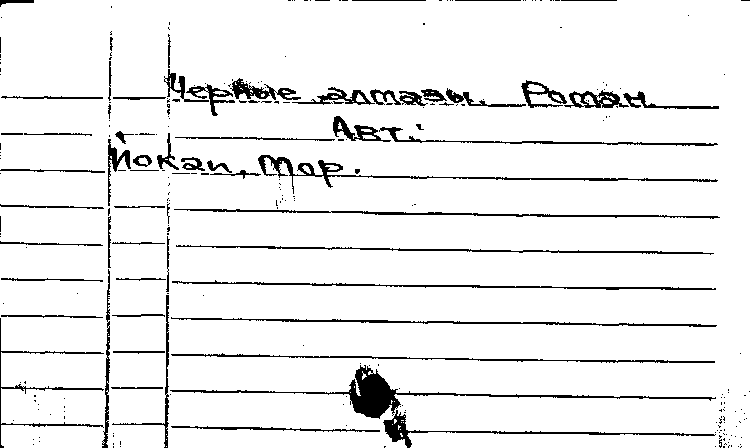 Черные алмазы. Роман.
Авт.:
Йокаи, Мор.